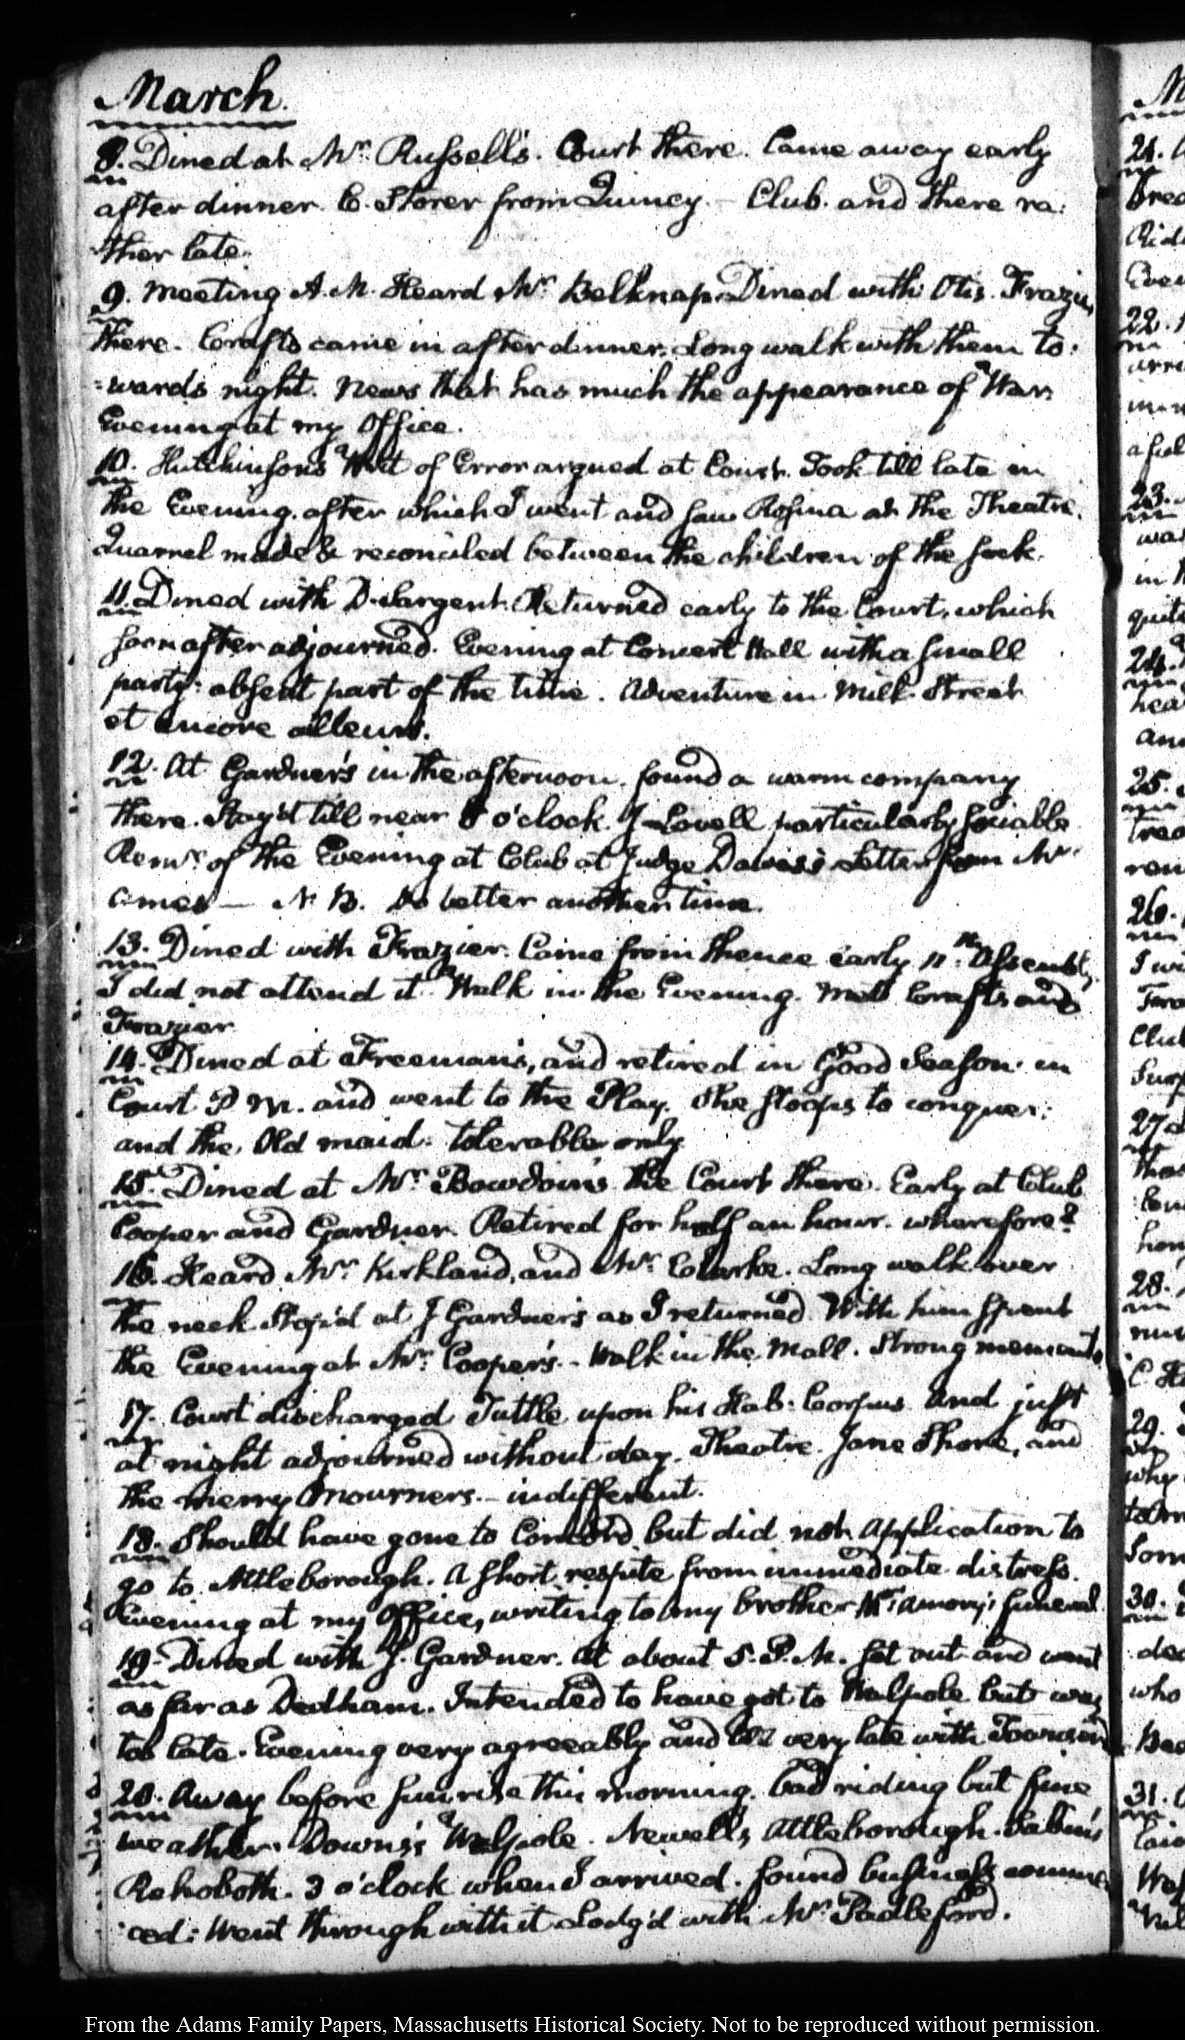 March.
8. Dined at Mr: Russell's. Court there. Came away early
after dinner. C. Storer from Quincy. — Club. and there ra-
ther late.
9. Meeting A.M. Heard Mr: Belknap. Dined with Otis. Frazier
there. Crafts came in after dinner. Long walk with them to-
-wards night. News that has much the appearance of War.
Evening at my Office.
10. Hutchinson's Writ of Error argued at Court. Took till late in
the Evening. after which I went and saw Rosina at the Theatre.
Quarrel made & reconciled between the children of the sock.
11. Dined with D. Sargent. Returned early to the Court, which
soon after adjourned. Evening at Concert Hall with a small
party: absent part of the time. Adventure in Milk Street
et encore ailleurs.
12. At Gardner's in the afternoon. found a warm company
there. Stay'd till near 8 o'clock. J Lovell particularly sociable
Remr. of the Evening at Club at Judge Dawes's Letter from Mr
Ames — N.B. do better another time.
13. Dined with Frazier. Came from thence early 11th. Assembly,
I did not attend it. Walk in the Evening. Met Crafts and
Frazier
14. Dined at Freeman's, and retired in Good Season. in
Court P.M. and went to the Play. She stoops to conquer:
and the Old maid: tolerable only.
15. Dined at Mr: Bowdoin's the Court there. Early at Club
Cooper and Gardner. Retired for half an hour. wherefore?
16. Heard Mr: Kirkland, and Mr: Clarke. Long walk over
the neck. Stop'd at J Gardner's as I returned. With him spent
the Evening at Mr: Cooper's. Walk in the Mall. Strong
17. Court discharged Tuttle upon his Hab: Corpus. And just
at night adjourned without day. Theatre. Jane Shore, and
the merry Mourners. — indifferent.
18. Should have gone to Concord, but did not. Application to
go to Attleborough. A short respite from immediate distress.
Evening at my Office, writing to my brother Mrs: Amory's funeral.
19. Dined with J. Gardner. At about 5. P.M. set out and went
as far as Dedham. Intended to have got to Walpole but was
too late. Evening very agreeably and till very late with
20. Away before sun rise this morning. bad riding but fine
weather. Downs's Walpole. Newell's Attleborough. Sabin's
Rehoboth. 3 o'clock when I arrived. found business commen-
ced: Went through with it Lodg'd with Mr: Padleford.
From the Adams Family Papers, Massachusetts Historical Society. Not to be reproduced without permission.